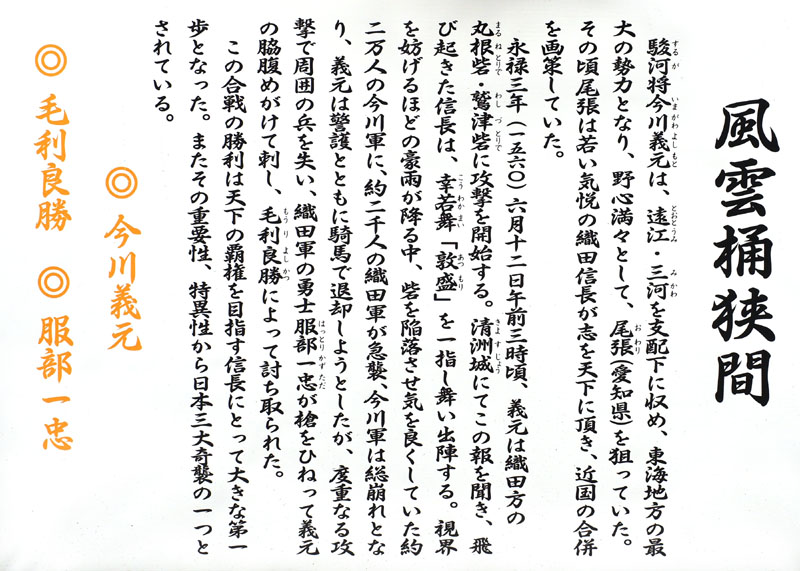 風雲桶狭間
駿河将今川義元は、遠江・三河を支配下に収め、東海地方の最
大の勢力となり、野心満々として、尾張(愛知県)を狙っていた。
その頃尾張は若い気悦の織田信長が志を天下に頂き、近国の合併
を画策していた。
永禄三年(一五六〇)六月十二日午前三時頃、義元は織田方の
丸根砦・鷲津砦に攻撃を開始する。清洲城にてこの報を聞き、飛
び起きた信長は、幸若舞「敦盛」を一指し舞い出陣する。視界
を妨げるほどの豪雨が降る中、砦を陥落させ気を良くしていた約
二万人の今川軍に、約二千人の織田軍が急襲、今川軍は総崩れとな
り、義元は警護とともに騎馬で退却しようとしたが、度重なる攻
撃で周囲の兵を失い、織田軍の勇士服部一忠が槍をひねって義元
の脇腹めがけて刺し、毛利良勝によって討ち取られた。
この合戦の勝利は天下の覇権を目指す信長にとって大きな第一
歩となった。またその重要性、特異性から日本三大奇襲の一つと
されている。
◎ 今川義元
◎ 毛利良勝 ◎ 服部一忠